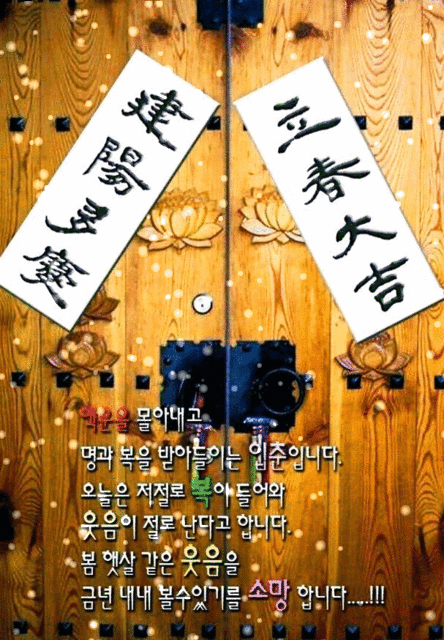 立春大吉
建陽多慶
액운을 몰아내고
명과 복을 받아들이는 입춘입니다.
오늘은 저절로 복이 들어와
웃음이 절로 난다고 합니다.
봄 햇살 같은 웃음을
금년 내내 볼수있기를 소망 합니다......!!!